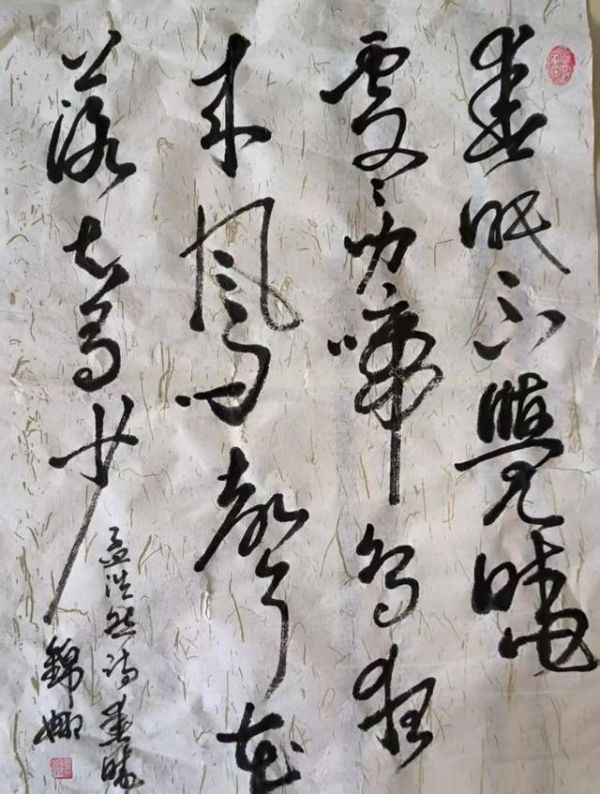 春眠不覺曉
處々聞啼鳥夜
来風雨聲花
落知多少
孟浩然詩春曉
錦娜